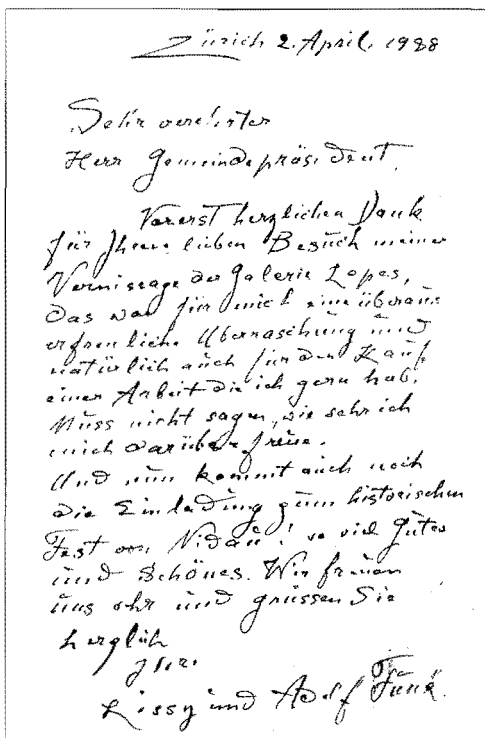 Zürich 2. April. 1988
Sehr verehrter
Herr Gemeindepräsident,
Vorerst herzlichen Dank
für Ihren lieben Besuch meiner
Vernissage der Galerie Lopes,
das war für mich eine überaus
erfreuliche Überraschung und
natürlich auch für den Kauf
einer Arbeit die ich gern hab.
Muss nicht sagen, wie sehr ich
mich darüber freue.
Und nun kommt auch noch
die Einladung zum historischen
Fest von Nidau! so viel Gutes
und Schönes. Wir freuen
uns sehr und grüssen Sie
herzlich
Ihre
Lissy und Adolf Funk.